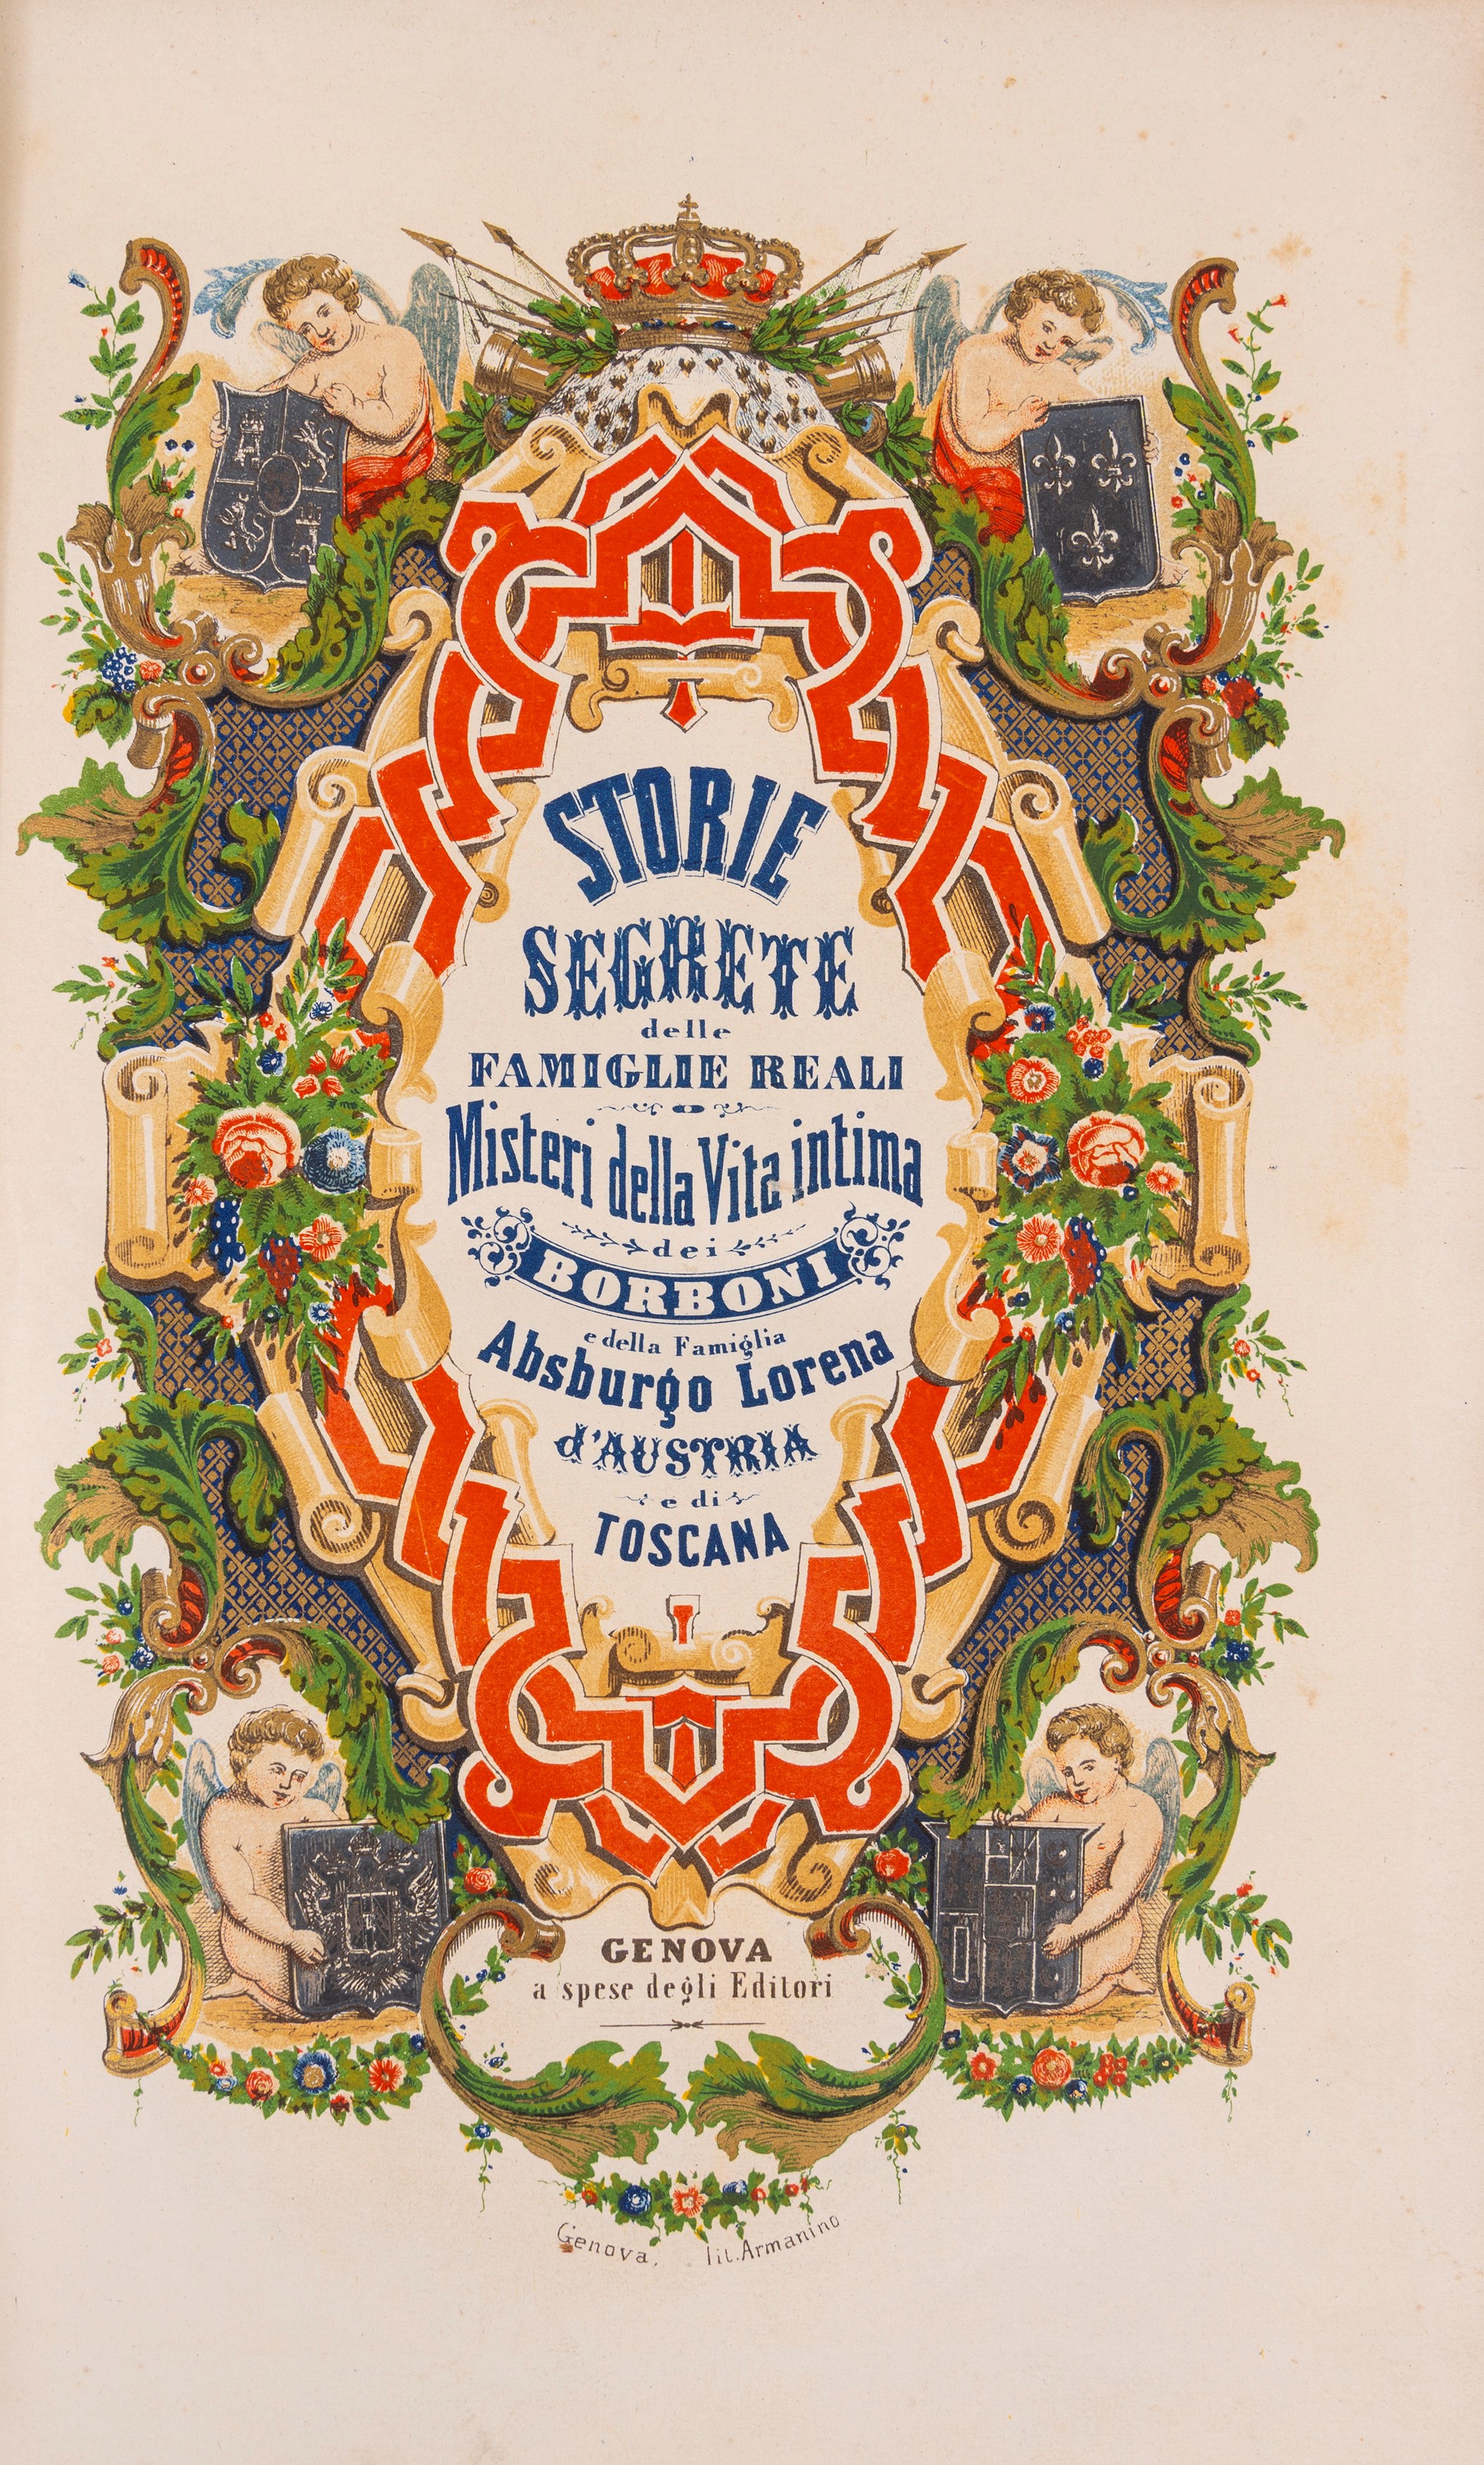 STORIE
SEGRETE
delle
FAMIGLIE REALI
Misteri della Vita intima
dei
BORBONI
e della Famiglia
Absburgo Lorena
d'AUSTRIA
e di
TOSCANA
GENOVA
a spese degli Editori
Genova, lit. Armanino